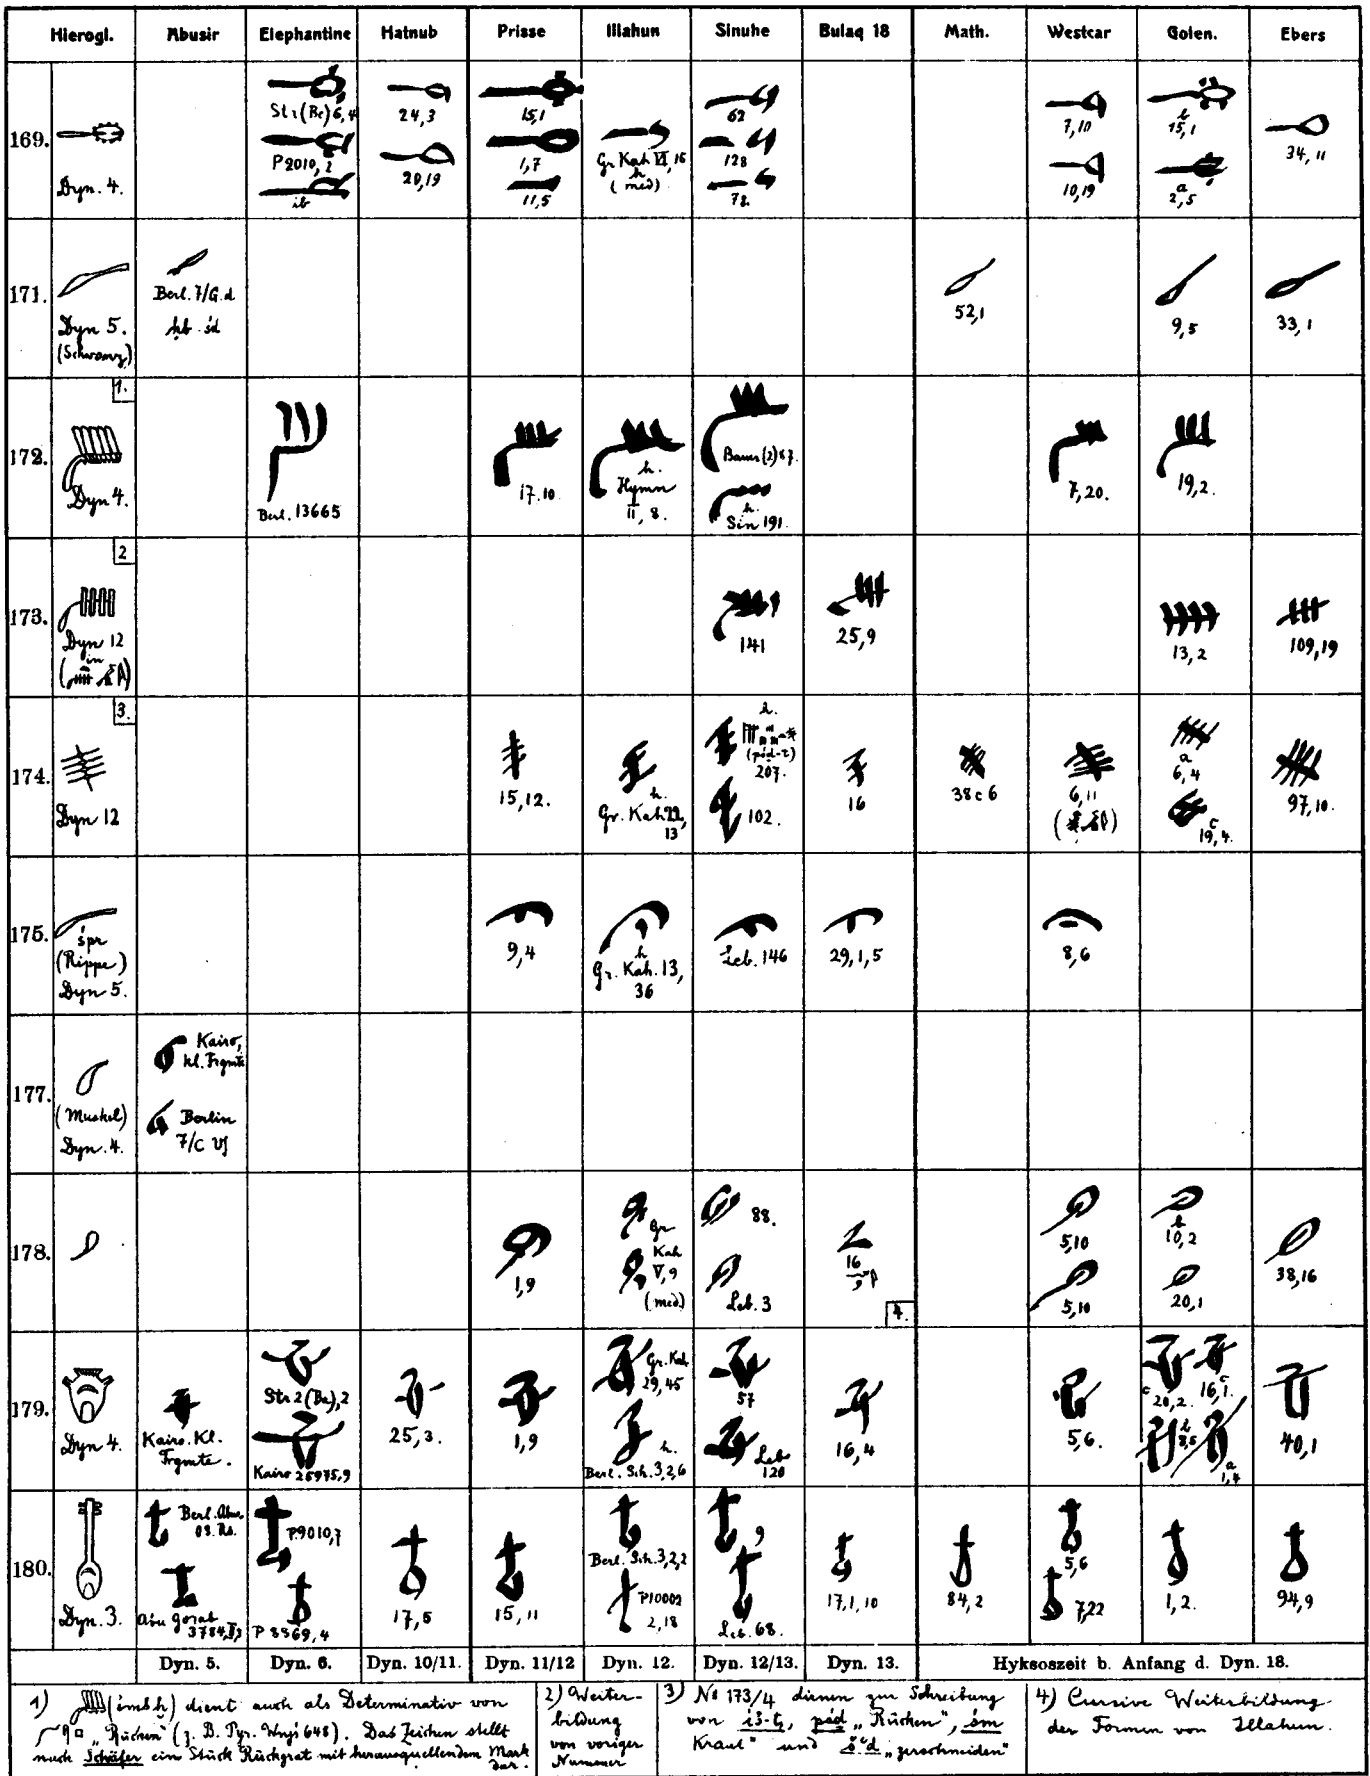 Hierogl. Abusir Elephantine Hatnub Prisse Illahun Sinuhe Bulaq 18 Math. Westcar Golen. Ebers
169.
Dyn. 4.
Str (Be) 6,4
P 2010, 2
ib
24,3
20,19
15,1
1,7
11,5
Gr. Kah VI, 16
h
(med)
62
128
78.
7,10
10,19
b
15,1
a
2,5
34, 11
171.
Dyn 5.
(Schwanz)
Berl. 7/G.d
ḥb-śd
52,1
9,5
33, 1
172.
1.
Dyn 4.
Berl. 13665
17.10.
h.
Hymn
II, 8.
Bauer (2)
h.
Sin 191.
7,20.
19,2.
173.
2
Dyn 12
in
141
25,9
13,2
109,19
174.
3.
Dyn 12
15,12.
h.
Gr. Kah 22,
13
h.
207.
102.
16
38 c 6
6,11
a
6,4
c
19,4.
97,10.
175.
śpr
(Rippe)
Dyn 5.
9,4
h
Gr. Kah. 13,
36
Leb. 146
29,1,5
8,6
177.
(Muskel)
Dyn. 4.
Kairo,
kl. Frgmte
Berlin
7/C
178.
1,9
Gr
Kah
V,9
(med.)
88.
Leb. 3
16
4.
5,10
5,10
b
10,2
20,1
38,16
179.
Dyn 4.
Kairo. Kl.
Frgmte.
Str 2 (Be),2
Kairo 25975,9
25,3.
1,9
Gr. Kah
29,45
h.
Berl. Sth. 3,2,6
57
Leb
120
16,4
5,6.
c
20,2.
c
16,1.
b
8,5
a
1,4
40,1
180.
Dyn. 3.
Berl. Abus
Abu Gorab
P.9010,7
P 8869,4
17,5
15, 11
Berl. Sth. 3,2,2
P 10002
2,18
9
Leb. 68.
17,1,10
84,2
5,6
7,22
1,2.
94,9
Dyn. 5. Dyn. 6. Dyn. 10/11. Dyn. 11/12 Dyn. 12. Dyn. 12/13. Dyn. 13. Hyksoszeit b. Anfang d. Dyn. 18.
1) (imꜣḫ) dient auch als Determinativ von
„Rücken" (z. B. Pyr. 648). Das Zeichen stellt
nach Schäfer ein Stück Rückgrat mit herausquellendem Mark
dar.
2) Weiter-
bildung
von voriger
Nummer
3) No 173/4 dienen zur Schreibung
von „Rücken", śm
Kraut" und „zerschneiden"
4) Cursive Weiterbildung
der Formen von Illahun.